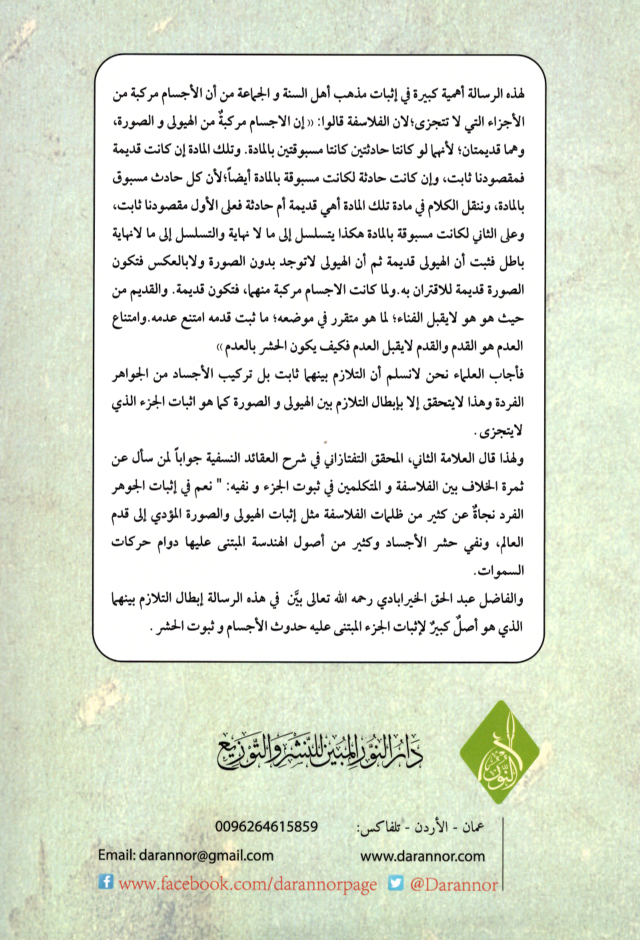 لهذه الرسالة أهمية كبيرة في إثبات مذهب أهل السنة و الجماعة من أن الأجسام مركبة من
الأجزاء التي لا تتجزى؛لان الفلاسفة قالوا: «إن الاجسام مركبةٌ من الهيولى و الصورة،
وهما قديمتان؛ لأنهما لو كانتا حادثتين كانتا مسبوقتين بالمادة. وتلك المادة إن كانت قديمة
فمقصودنا ثابت، وإن كانت حادثة لكانت مسبوقة بالمادة أيضاً؛لأن كل حادث مسبوق
بالمادة، وننقل الكلام في مادة تلك المادة أهي قديمة أم حادثة فعلى الأول مقصودنا ثابت،
وعلى الثاني لكانت مسبوقة بالمادة هكذا يتسلسل إلى ما لا نهاية والتسلسل إلى ما لانهاية
باطل فثبت أن الهيولى قديمة ثم أن الهيولى لاتوجد بدون الصورة ولابالعكس فتكون
الصورة قديمة للاقتران به.ولما كانت الاجسام مركبة منهما، فتكون قديمة. والقديم من
حيث هو هو لايقبل الفناء؛ لما هو متقرر في موضعه؛ ما ثبت قدمه امتنع عدمه.وامتناع
العدم هو القدم والقدم لايقبل العدم فكيف يكون الحشر بالعدم»
فأجاب العلماء نحن لانسلم أن التلازم بينهما ثابت بل تركيب الأجساد من الجواهر
الفردة وهذا لايتحقق إلا بإبطال التلازم بين الهيولى و الصورة كما هو اثبات الجزء الذي
لايتجزى.
ولهذا قال العلامة الثاني، المحقق التفتازاني في شرح العقائد النسفية جواباً لمن سأل عن
ثمرة الخلاف بين الفلاسفة و المتكلمين في ثبوت الجزء و نفيه: " نعم في إثبات الجوهر
الفرد نجاةٌ عن كثير من ظلمات الفلاسفة مثل إثبات الهيولى والصورة المؤدي إلى قدم
العالم، ونفي حشر الأجساد وكثير من أصول الهندسة المبتنى عليها دوام حركات
السموات.
والفاضل عبد الحق الخيرابادي رحمه الله تعالى بيَّن في هذه الرسالة إبطال التلازم بينهما
الذي هو أصلٌ كبيرٌ لإثبات الجزء المبتنى عليه حدوث الأجسام و ثبوت الحشر .
النُّور
دَارُ النُّورِ المُبِين لِلنَّشْرِ وَالتَّوْزِيع
عمان - الأردن - تلفاكس: 0096264615859
Email: darannor@gmail.com www.darannor.com
www.facebook.com/darannorpage @Darannor